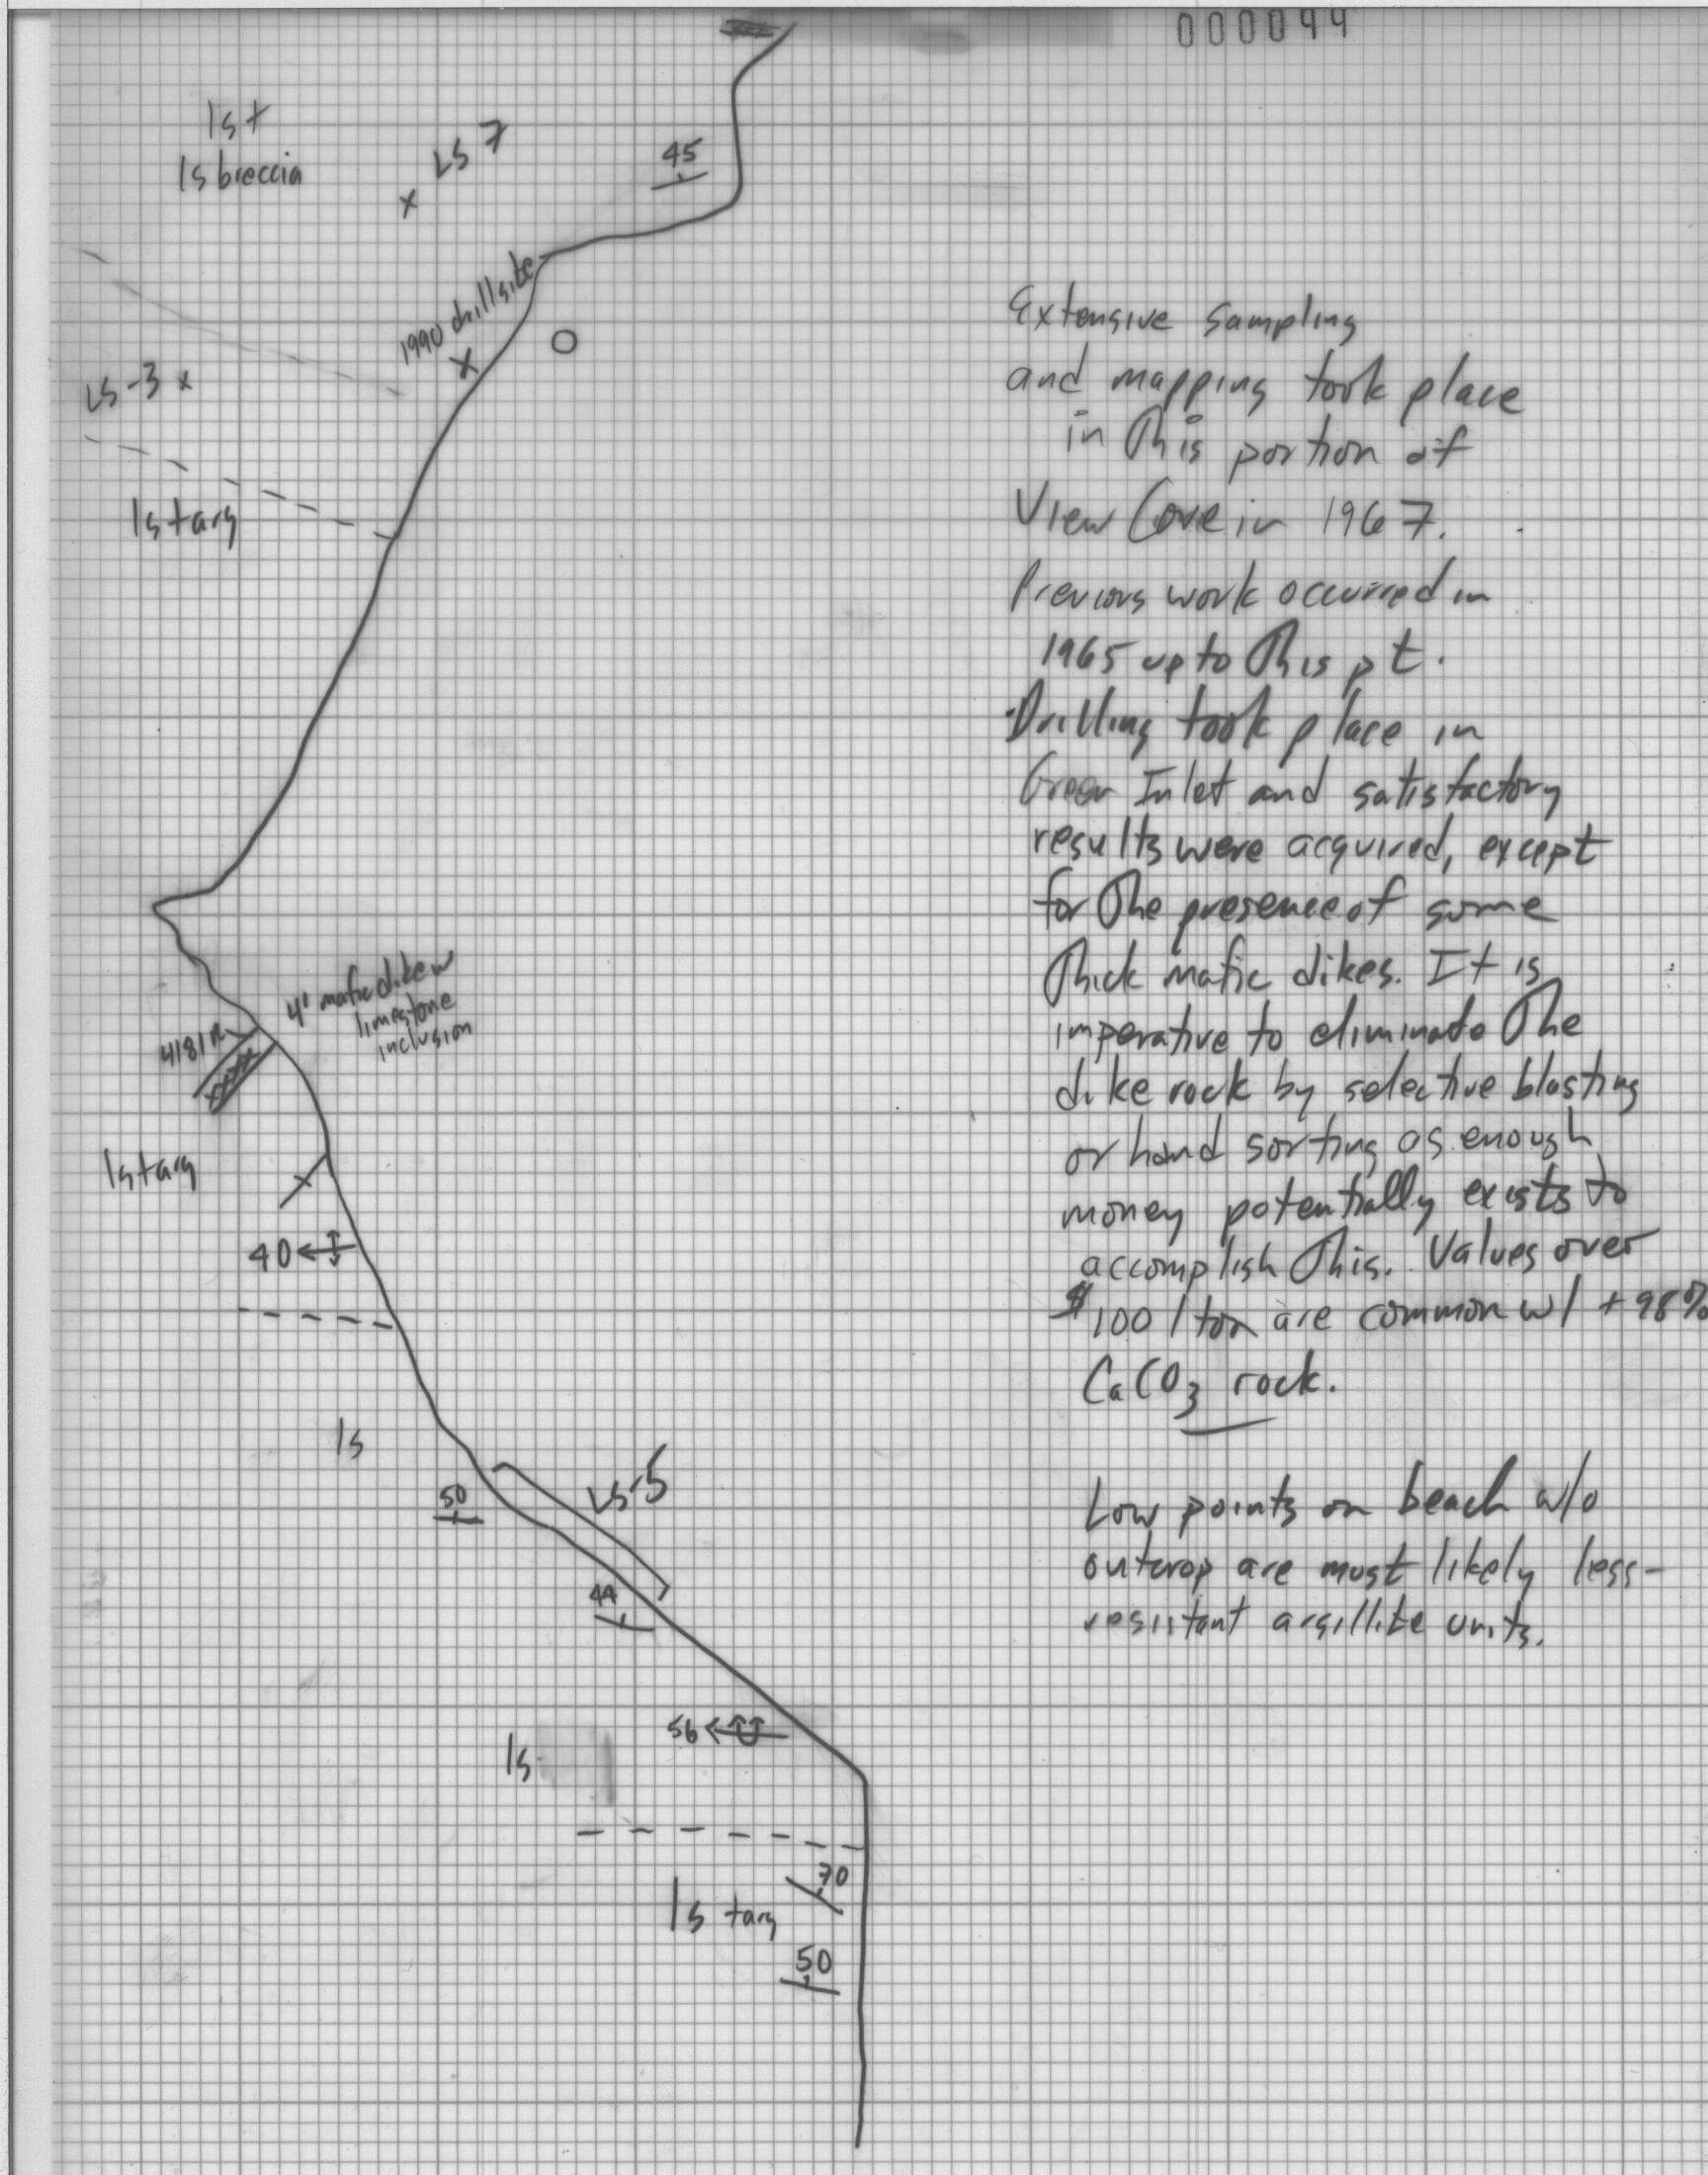 000044
ls +
ls breccia
LS 7
45
1990 drillsite
O
LS-3 x
ls + arg
4' mafic dike w
limestone
inclusion
4181R
ls + arg
40
ls
50
LS-5
44
56
ls
70
ls + arg
50
Extensive sampling
and mapping took place
in this portion of
View Cove in 1967.
Previous work occurred in
1965 up to this pt.
Drilling took place in
Green Inlet and satisfactory
results were acquired, except
for the presence of some
thick mafic dikes. It is
imperative to eliminate the
dike rock by selective blasting
or hand sorting as enough
money potentially exists to
accomplish this. Values over
$100/ton are common w/ +98%
CaCO3 rock.
Low points on beach w/o
outcrop are most likely less-
resistant argillite units.